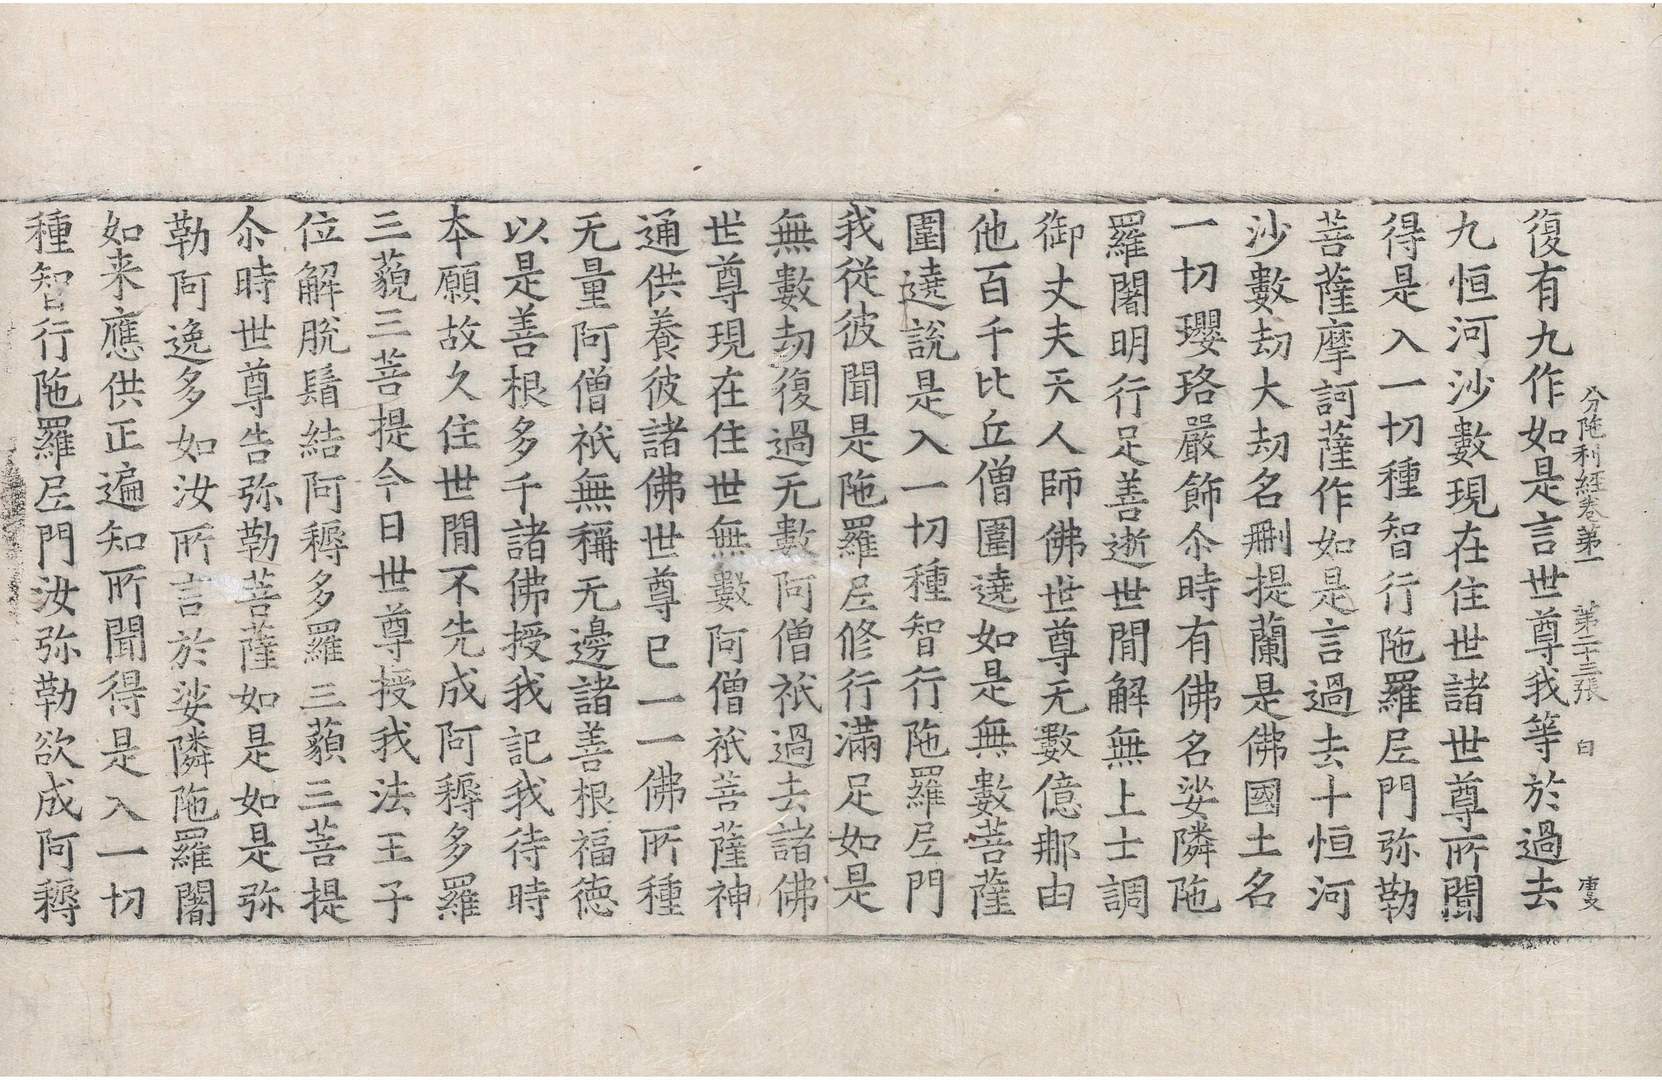 分陁利經卷第一　第二十三張　白
復有九作如是言世尊我等於過去
九恒河沙數現在住世諸世尊所聞
得是入一切種智行陁羅尼門弥勒
菩薩摩訶薩作如是言過去十恒河
沙數劫大劫名刪提蘭是佛國土名
一切瓔珞嚴飾尒時有佛名娑隣陁
羅闍明行足善逝世間解無上士調
御丈夫天人師佛世尊无數億那由
他百千比丘僧圍遶如是無數菩薩
圍遶說是入一切種智行陁羅尼門
我從彼聞是陁羅尼修行滿足如是
無數劫復過无數阿僧祇過去諸佛
世尊現在住世無數阿僧祇菩薩神
通供養彼諸佛世尊已一一佛所種
无量阿僧祇無稱无邊諸善根福德
以是善根多千諸佛授我記我待時
本願故久住世間不先成阿耨多羅
三藐三菩提今日世尊授我法王子
位解脫鬚結阿耨多羅三藐三菩提
尒時世尊告弥勒菩薩如是如是弥
勒阿逸多如汝所言於娑隣陁羅闍
如来應供正遍知所聞得是入一切
種智行陁羅尼門汝弥勒欲成阿耨